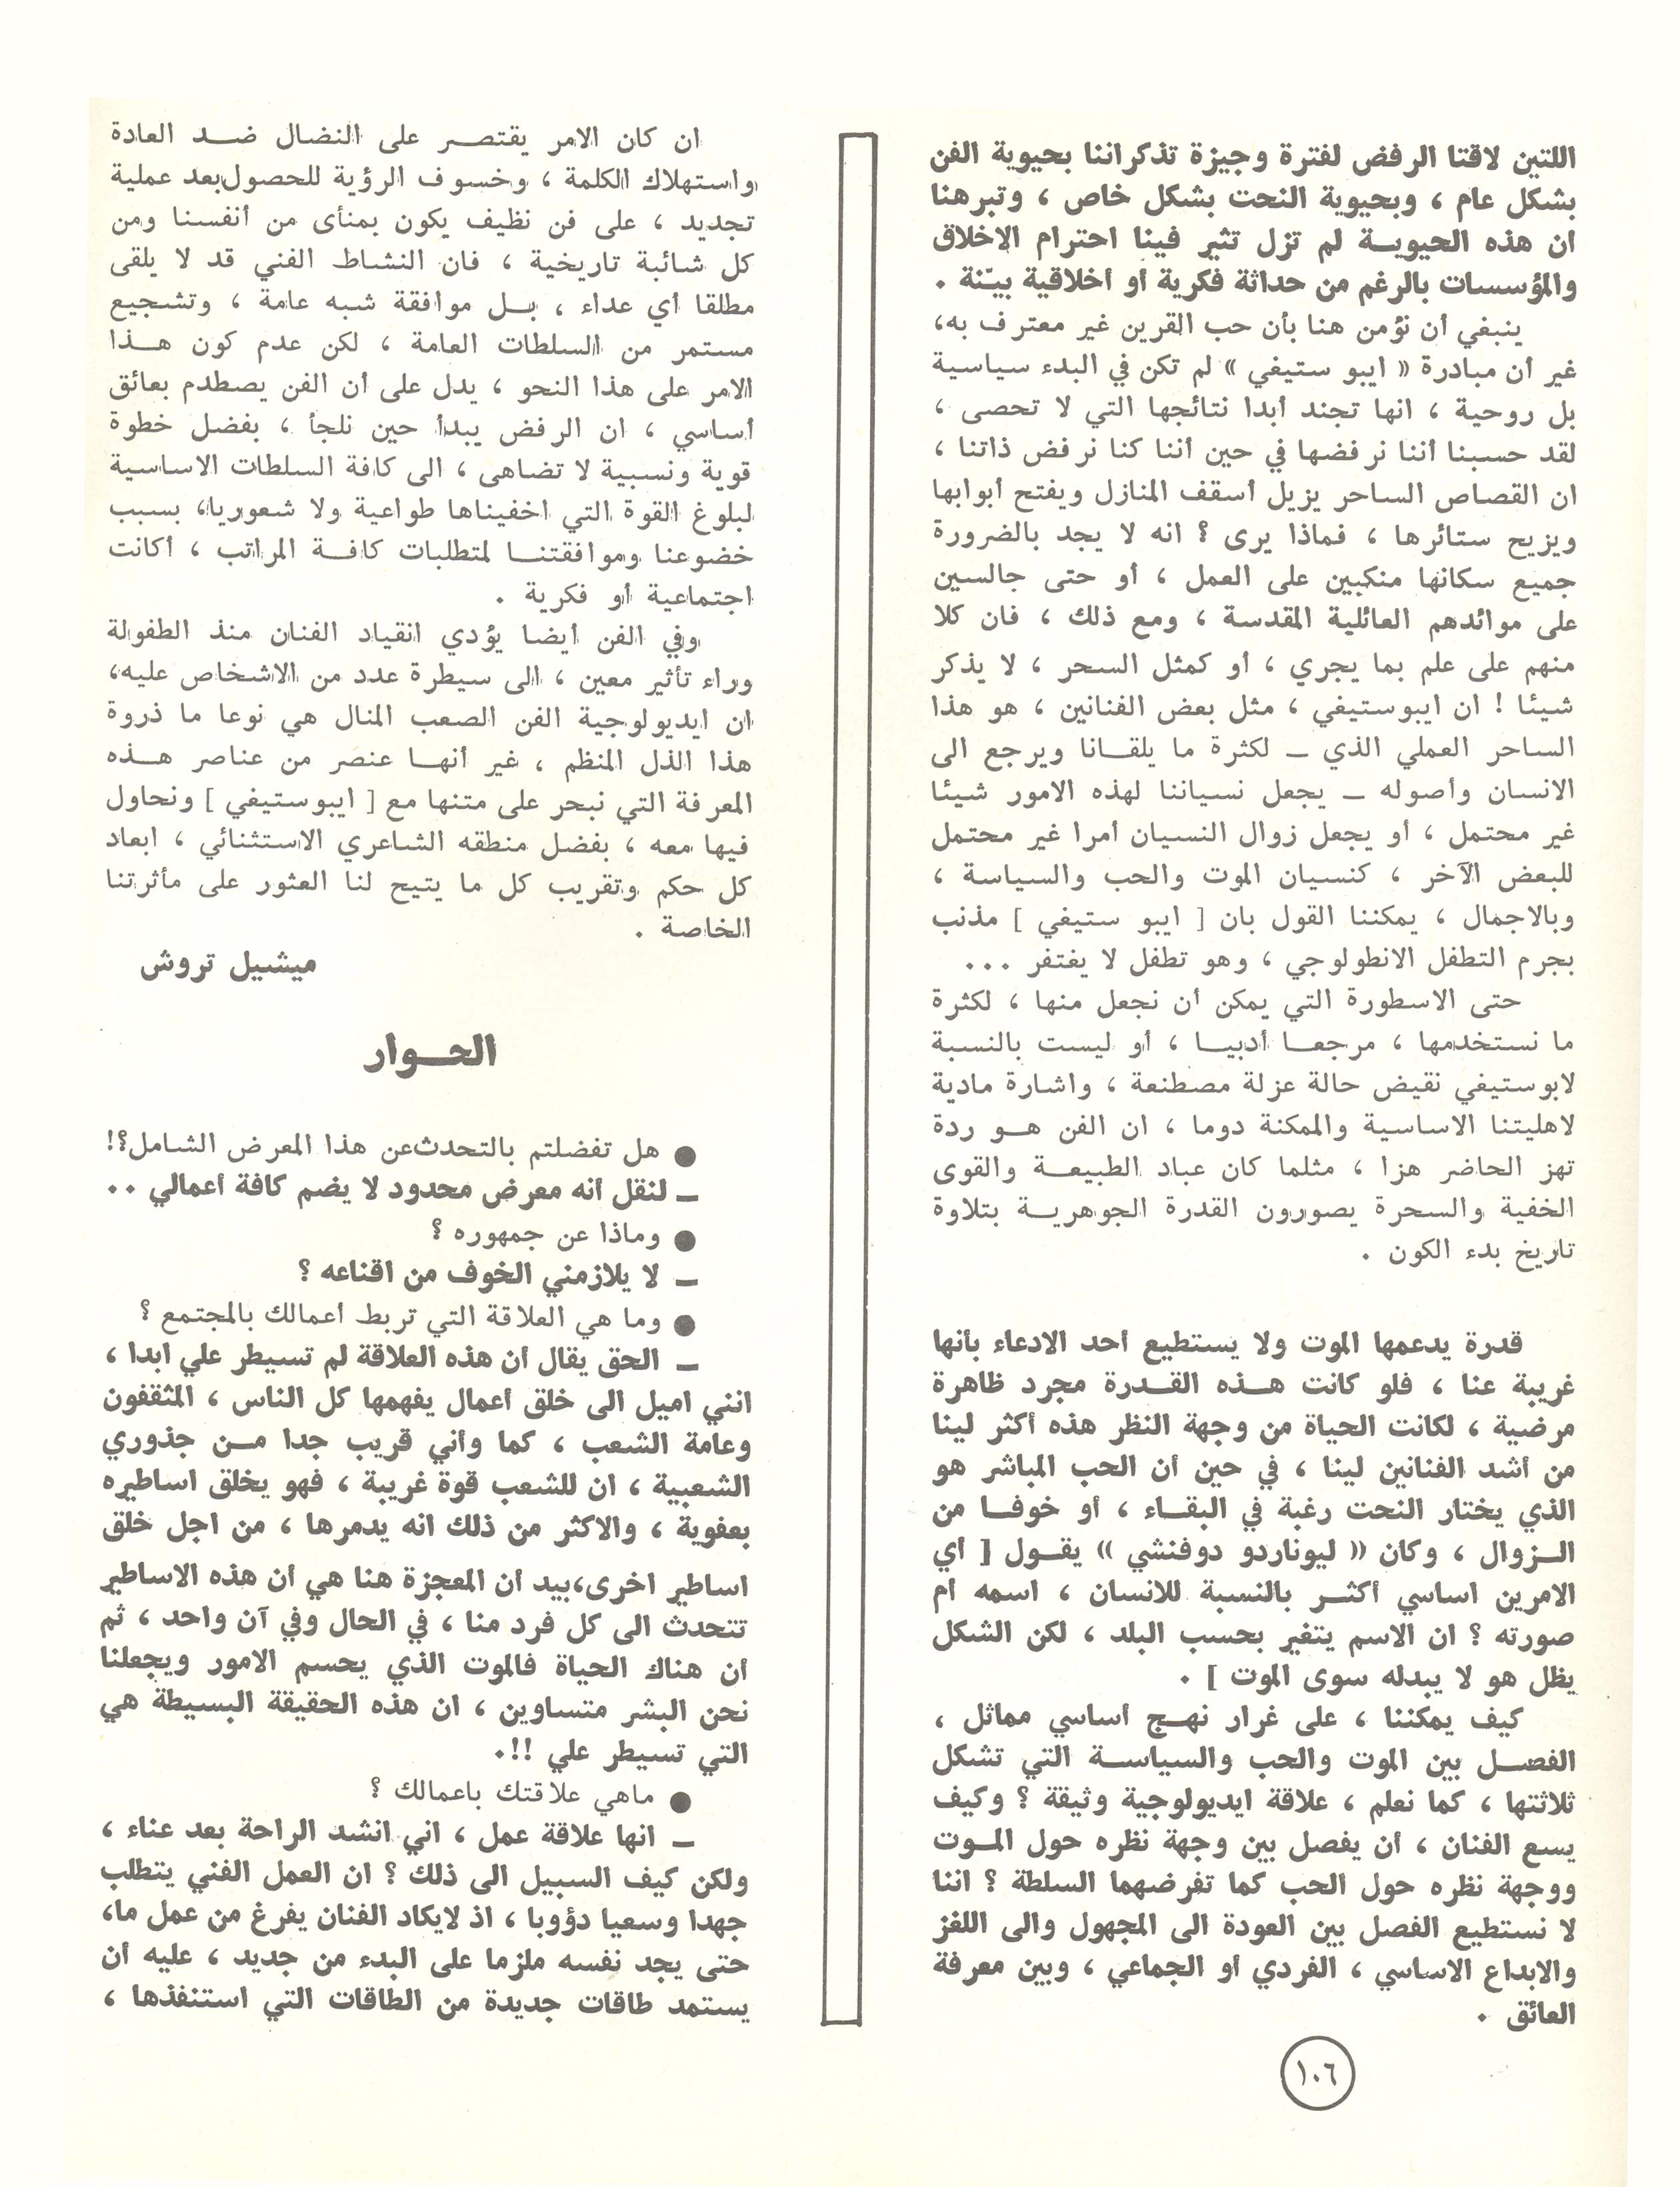 اللتين لاقتا الرفض لفترة وجيزة تذكراننا بحيوية الفن
بشكل عام ، وبحيوية النحت بشكل خاص ، وتبرهنا
ان هذه الحيويـة لم تزل تثير فينا احترام الاخلاق
والمؤسسات بالرغم من حداثة فكرية أو أخلاقية بيّنة .
ينبغي أن نؤمن هنا بأن حب القرين غير معترف به،
غير أن مبادرة « ايبو ستيفي » لم تكن في البدء سياسية
بل روحية ، انها تجند أبدا نتائجها التي لا تحصى ،
لقد حسبنا أننا نرفضها في حين أننا كنا نرفض ذاتنا ،
ان القصاص الساحر يزيل أسقف المنازل ويفتح أبوابها
ويزيح ستائرها ، فماذا يرى ؟ انه لا يجد بالضرورة
جميع سكانها منكبين على العمل ، أو حتى جالسين
على موائدهم العائلية المقدسة ، ومع ذلك ، فان كلا
منهم على علم بما يجري ، أو كمثل السحر ، لا يذكر
شيئا ! ان ايبوستيفي ، مثل بعض الفنانين ، هو هذا
الساحر العملي الذي ـ لكثرة ما يلقـانا ويرجع الى
الانسان وأصوله ـ يجعل نسياننا لهذه الامور شيئا
غير محتمل ، أو يجعل زوال النسيان أمرا غير محتمل
للبعض الآخر ، كنسيان الموت والحب والسياسة ،
وبالاجمال ، يمكننا القول بان [ ايبو ستيفي ] مذنب
بجرم التطفل الانطولوجي ، وهو تطفل لا يغتفر ...
حتى الاسطورة التي يمكن أن نجعل منها ، لكثرة
ما نستخدمها ، مرجعـا أدبيـا ، أو ليست بالنسبة
لابوستيفي نقيض حالة عزلة مصطنعة ، واشارة مادية
لاهليتنا الاساسية والممكنة دوما ، ان الفن هـو ردة
تهز الحاضر هزا ، مثلما كان عباد الطبيعـة والقوى
الخفية والسحرة يصورون القدرة الجوهريـة بتلاوة
تاريخ بدء الكون .
قدرة يدعمها الموت ولا يستطيع أحد الادعاء بأنها
غريبة عنا ، فلو كانت هـذه القـدرة مجرد ظاهرة
مرضية ، لكانت الحياة من وجهة النظر هذه أكثر لينا
من أشد الفنانين لينا ، في حين أن الحب المباشر هو
الذي يختار النحت رغبة في البقـاء ، أو خوفـا من
الـزوال ، وكان « ليوناردو دوفنشي » يقـول [ أي
الامرين اساسي أكثـر بالنسبة للانسان ، اسمه ام
صورته ؟ ان الاسم يتغير بحسب البلد ، لكن الشكل
يظل هو لا يبدله سوى الموت ] .
كيف يمكننا ، على غرار نهـج أساسي مماثل ،
الفصـل بين الموت والحب والسياسـة التي تشكل
ثلاثتها ، كما نعلم ، علاقة ايديولوجية وثيقة ؟ وكيف
يسع الفنان ، أن يفصل بين وجهة نظره حول المـوت
ووجهة نظره حول الحب كما تفرضهما السلطة ؟ اننا
لا نستطيع الفصل بين العودة الى المجهول والى اللغز
والابداع الاساسي ، الفردي أو الجماعي ، وبين معرفة
العائق .
ان كان الامر يقتصـر على النضال ضـد العادة
واستهلاك الكلمة ، وخسوف الرؤية للحصول بعد عملية
تجديد ، على فن نظيف يكون بمنأى من أنفسنا ومن
كل شائبة تاريخية ، فان النشاط الفني قد لا يلقى
مطلقا أي عداء ، بـل موافقة شبه عامة ، وتشجيع
مستمر من السلطات العامة ، لكن عدم كون هـذا
الامر على هذا النحو ، يدل على أن الفن يصطدم بعائق
أساسي ، ان الرفض يبدأ حين نلجأ ، بفضل خطوة
قوية ونسبية لا تضاهى ، الى كافة السلطات الاساسية
لبلوغ القوة التي اخفيناها طواعية ولا شعوريا، بسبب
خضوعنا وموافقتنـا لمتطلبات كافـة المراتب ، أكانت
اجتماعية أو فكرية .
وفي الفن أيضا يؤدي انقياد الفنان منذ الطفولة
وراء تأثير معين ، الى سيطرة عدد من الاشخاص عليه،
ان ايديولوجية الفن الصعب المنال هي نوعا ما ذروة
هذا الذل المنظم ، غير أنهـا عنصر من عناصر هـذه
المعرفة التي نبحر على متنها مع [ ايبوستيفي ] ونحاول
فيها معه ، بفضل منطقه الشاعري الاستثنائي ، ابعاد
كل حكم وتقريب كل ما يتيح لنا العثور على مأثرتنا
الخاصة .
ميشيل تروش
الحـوار
● هل تفضلتم بالتحدث عن هذا المعرض الشامل؟!
ـ لنقل أنه معرض محدود لا يضم كافة أعمالي ..
● وماذا عن جمهوره ؟
ـ لا يلازمني الخوف من اقناعه ؟
● وما هي العلاقة التي تربط أعمالك بالمجتمع ؟
ـ الحق يقال أن هذه العلاقة لم تسيطر علي أبدا ،
انني اميل الى خلق أعمال يفهمها كل الناس ، المثقفون
وعامة الشعب ، كما وأني قريب جدا مـن جذوري
الشعبية ، ان للشعب قوة غريبة ، فهو يخلق اساطيره
بعفوية ، والاكثر من ذلك انه يدمرها ، من اجل خلق
اساطير اخرى، بيد أن المعجزة هنا هي أن هذه الاساطير
تتحدث الى كل فرد منا ، في الحال وفي آن واحد ، ثم
أن هناك الحياة فالموت الذي يحسم الامور ويجعلنا
نحن البشر متساوين ، ان هذه الحقيقة البسيطة هي
التي تسيطر علي !!.
● ماهي علاقتك باعمالك ؟
ـ انها علاقة عمل ، اني انشد الراحة بعد عناء ،
ولكن كيف السبيل الى ذلك ؟ ان العمل الفني يتطلب
جهدا وسعيا دؤوبا ، اذ لايكاد الفنان يفرغ من عمل ما،
حتى يجد نفسه ملزما على البدء من جديد ، عليه أن
يستمد طاقات جديدة من الطاقات التي استنفذها ،
١٠٦